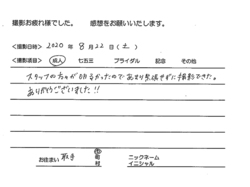 撮影お疲れ様でした。 感想をお願いいたします。
<撮影日時> 2020年 8月 22日 (土)
<撮影項目> 成人 七五三 ブライダル 記念 その他
スタッフの方々が明るかったのであまり緊張せずに撮影できた。
ありがとうございました!!
お住まい 取手 市 町 村 ニックネーム
イニシャル